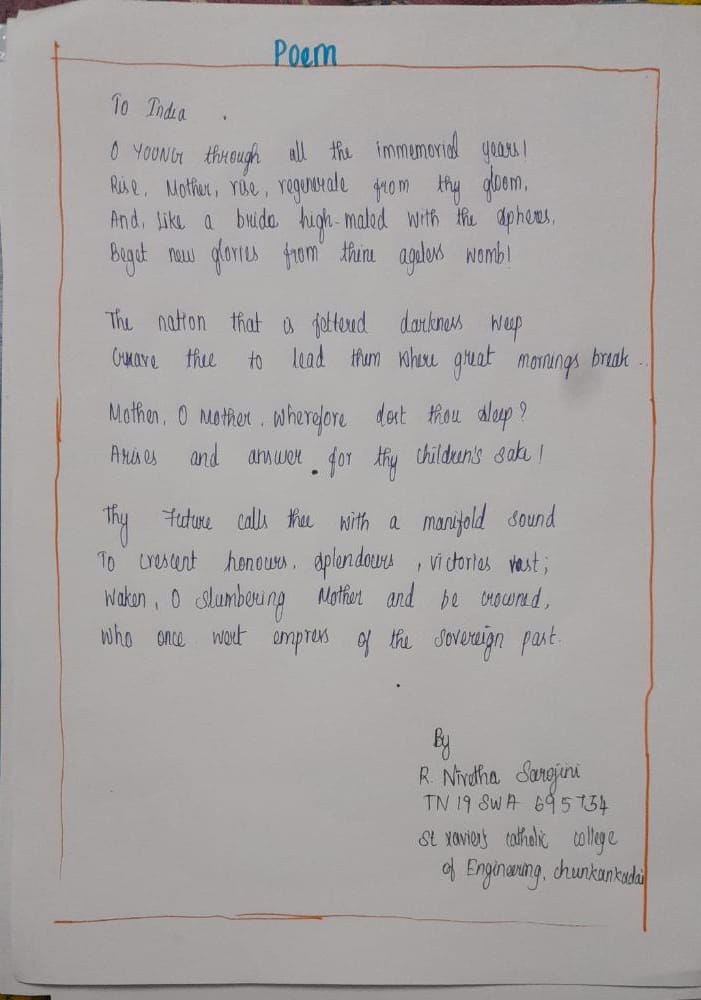 Poem
To India .
O YOUNG through all the immemorial years!
Rise, Mother, rise, regenerate from thy gloom,
And, like a bride high-mated with the spheres,
Beget new glories from thine ageless womb!
The nation that is fettered darkness weep
Crave thee to lead them where great mornings break ..
Mother, O Mother, wherefore dost thou sleep?
Arises and answer for thy children's sake!
Thy Future calls thee with a manifold sound
To crescent honours, splendours, victories vast;
Waken, O Slumbering Mother and be crowned,
Who once wert empress of the sovereign past.
By
R. Nivetha Sarojini
TN 19 SWA 695734
St xavier's catholic college
of Engineering, chunkankadai